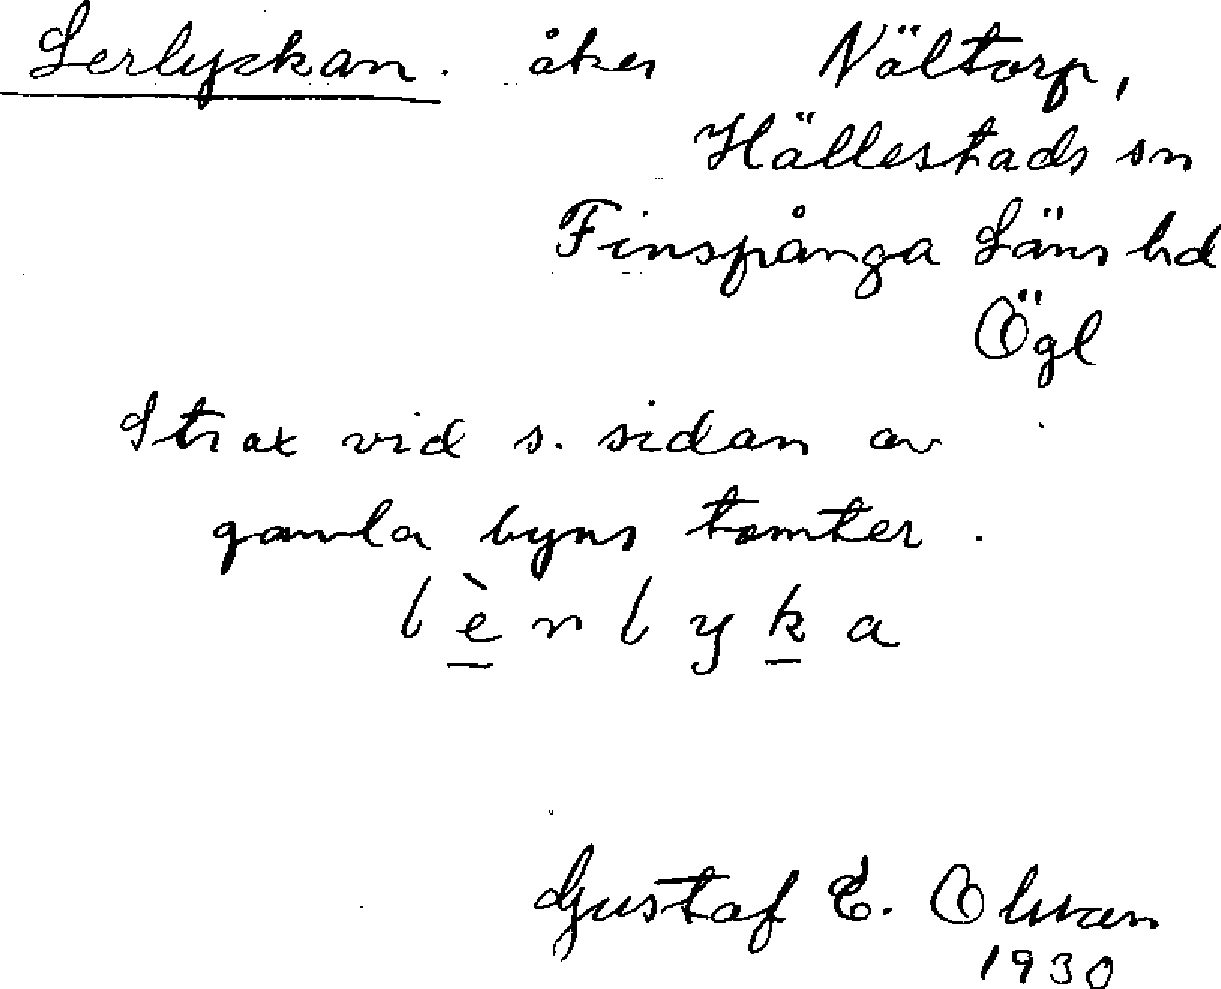 Lerlyckan. åker Nältorp,
Hällestads sn
Finspånga Läns hd
Ögl
Strax vid s. sidan av
gamla byns tomter.
lènlyka
Gustaf E. Olsson
1930